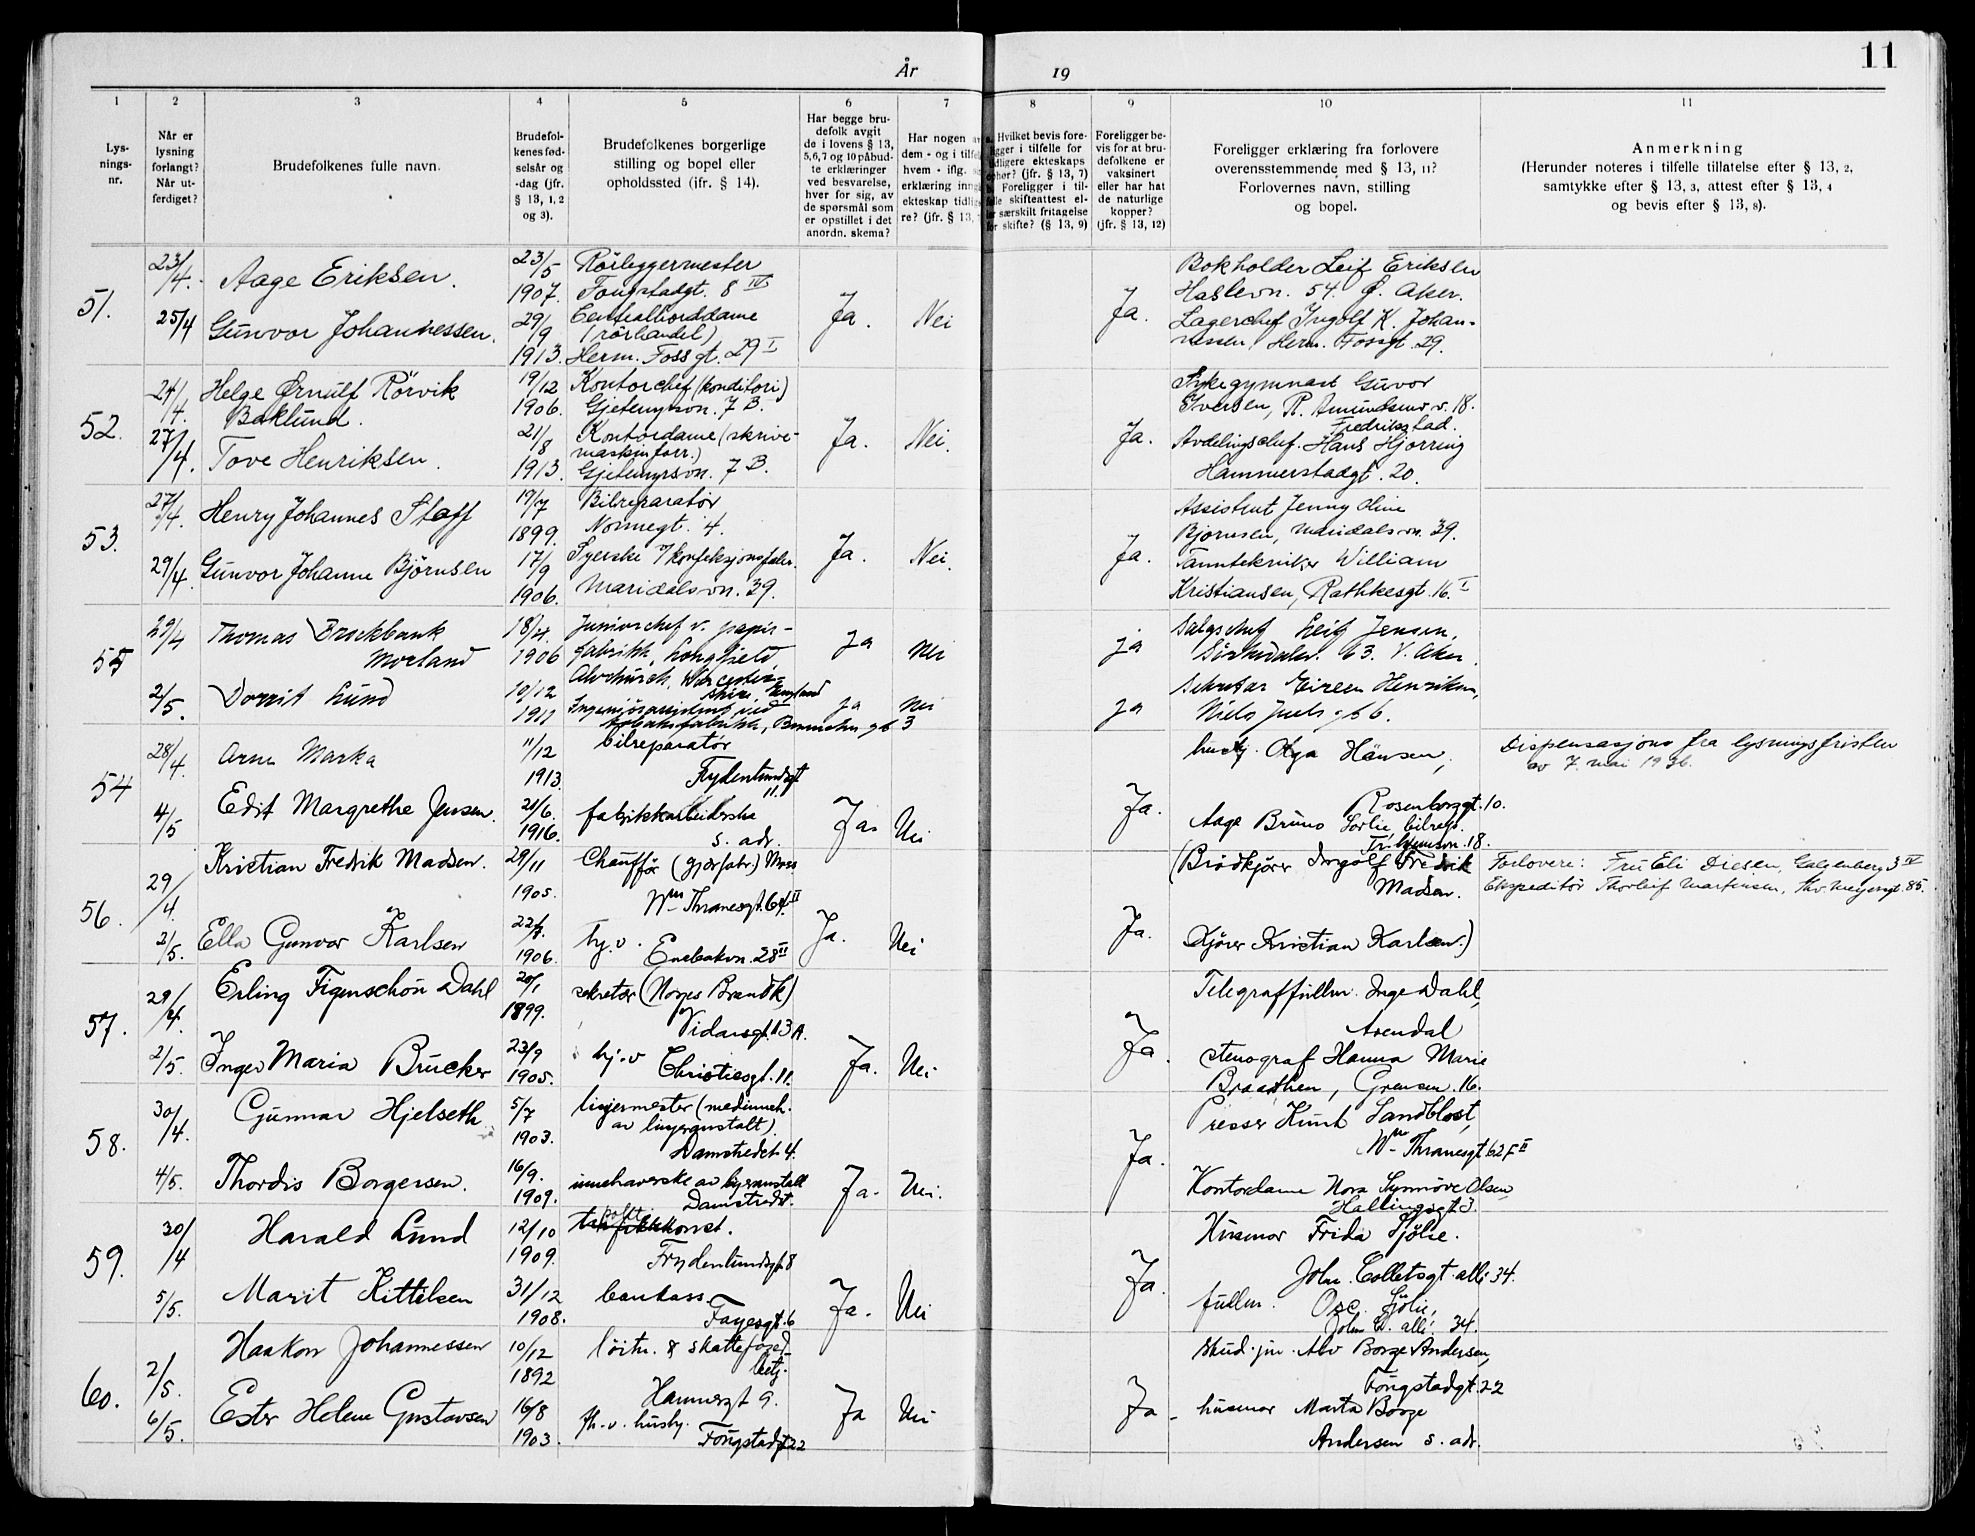 År 19
11
1
2
3
4
5
6
7
8
9
10
11
Lys-
nings-
nr.
Når er
lysning
forlangt?
Når ut-
ferdiget?
Brudefolkenes fulle navn.
Brudefol-
kenes fød-
selsår og
-dag (jfr.
§ 13, 1, 2
og 3).
Brudefolkenes borgerlige
stilling og bopel eller
opholdssted (ifr. § 14).
Har begge bru-
defolk avgit
de i lovens § 13,
5,6,7 og 10 påbud-
te erklæringer
ved besvarelse,
hver for sig, av
de spørsmål som
er opstillet i det
anordn. skema?
Har nogen
dem - og i
hvem - iflg.
erklæring
ekteskap
re? (jfr. § 13,
Hvilket bevis fore-
ligger i tilfelle for
tidligere ekteskaps
ophør? (jfr. § 13, 7)
Foreligger i til-
felle skifteattest el-
ler særskilt fritagelse
for skifte? (§ 13, 9)
Foreligger be-
vis for at bru-
defolkene er
vaksinert
eller har hat
de naturlige
kopper?
(jfr. § 13, 12)
Foreligger erklæring fra forlovere
overensstemmende med § 13, 11?
Forlovernes navn, stilling
og bopel.
Anmerkning
(Herunder noteres i tilfelle tillatelse efter § 13, 2,
samtykke efter § 13, 3, attest efter § 13, 4
og bevis efter § 13, 8).
51.
23/4.
25/4
Aage Eriksen.
Gunvor Johannessen.
23/5
1907.
29/9
1913.
Rörleggermester
Fougstadgt. 8 IV
Centralborddame
(rörhandel)
Herm. Foss gt. 29 I
Ja.
Nei
Ja.
Bokholder Leif Eriksen
Haslevn. 54. Ø. Aker.
Lagerchef Ingolf K. Johan-
nessen, Herm. Fossgt. 29.
52.
24/4.
27/4.
Helge Ørnulf Rörvik
Baklund.
Tove Henriksen.
19/12
1906.
21/8
1913.
Kontorchef (konditori)
Gjetemyrsvn. 7 B.
Kontordame (skrive-
maskinforr.)
Gjetemyrsvn. 7 B.
Ja.
Nei.
Ja.
Sykegymnast Guvor
Iversen, R. Amundsens v. 18.
Fredrikstad.
Avdelingschef. Hans Hjorring
Hammerstadgt. 20.
53.
27/4.
29/4.
Henry Johannes Staff
Gunvor Johanne Björnsen
19/7
1899.
17/9
1906.
Bilreparatør
Nornegt. 4.
Syerske
Maridalsvn. 39.
Ja.
Nei.
Ja.
Assistent Jenny Oline
Bjornsen, Maridalsvn. 39.
Tanntekniker William
Kristiansen, Rathkesgt. 16. I
55
29/4
2/5.
Thomas Brockbank
Morland
Dorrit Lund
18/4.
1906
10/12
1911
Juniorchef v. papir-
fabrikk, Longfield,
Alvchurch, Worcester-
shire, England
Ingeniörassistent ved
tobaksfabrikk,
ja
nei
ja
nei
ja
ja
Salgschef Leif Jensen,
Sörkedalsv. 63. V. Aker.
Sekretær Eireen Henriksen,
Niels Juels gt 6.
54
28/4.
4/5
Arne Marka
Edit Margrethe Jensen.
11/12
1913.
21/6.
1916.
bilreparatør
Frydenlundsgt
11.
fabrikkarbeiderske
s. adr.
Ja.
Nei
Ja.
hustj. Olga Hansen,
Rosenborggt. 10.
Aage Bruno Sorlie, bilrep.
18.
Dispensasjon fra lysningsfristen
av 7. mai 1936.
56.
29/4.
2/5.
Kristian Fredrik Madsen.
Ella Gunvor Karlsen
29/11
1905.
22/8.
1906.
Chauffør (gjærfabr.) Moss
Wm Thranesgt. 64 II
hj. v.
Enebakvn. 28 II
Ja.
Nei
Ja.
(Brödkjører Ingolf Fredrik
Madsen.
Kjører Kristian Karlsen.)
Forlovere: Fru Eli Diesen, Galgeberg 3 IV
Ekspeditör Thorleif Martensen, Thv. Meyersgt. 85.
57.
29/4.
2/5.
Erling Figenschou Dahl
Inger Maria Brücker
20/1
1899.
23/9
1905.
sekretær (Norges Brandk)
Vidarsgt. 13 A.
hj. v
Christiesgt. 11.
Ja.
Nei
Ja.
Telegraffullm. Inge Dahl,
Arendal
stenograf Hanna Marie
Braathen, Grensen. 16.
58.
30/4.
4/5.
Gunnar Hjelseth
Thordis Borgersen.
5/7
1903.
16/9.
1909.
linjermester (medinneh.
av linjeranstalt)
Damstredet 4.
innehaverske av linjeranstalt
Damstredet.
Ja.
Nei.
Ja.
reiser Knut Sandblost,
Wm Thranesgt 62 F II
Kontordame Nora Synnöve Olsen,
Hallingsgt 3.
59.
30/4
5/5.
Harald Lund
Marit Kittelsen
12/10
1909.
31/12
1908.
Frydenlundsgt 8
bankass.
Fayesgt. 6
Ja.
Nei
Ja.
Husmor Frida Sjölie.
John. Colletsgt. allé 34.
fullm. Osc. Sjölie,
John C. allé 34.
60.
2/5.
6/5.
Haakon Johannessen
Ester Helene Gustavsen
10/12
1892
16/8
1903.
löitn. & skattefoged-
betj.
Hammergt 9.
fh. v. husby.
Fougstadgt 22
Ja
Nei
Ja
Stud. jur. Alv Borge Andersen,
Fougstadgt 22
husmor Marta Borge
Andersen s. adr.